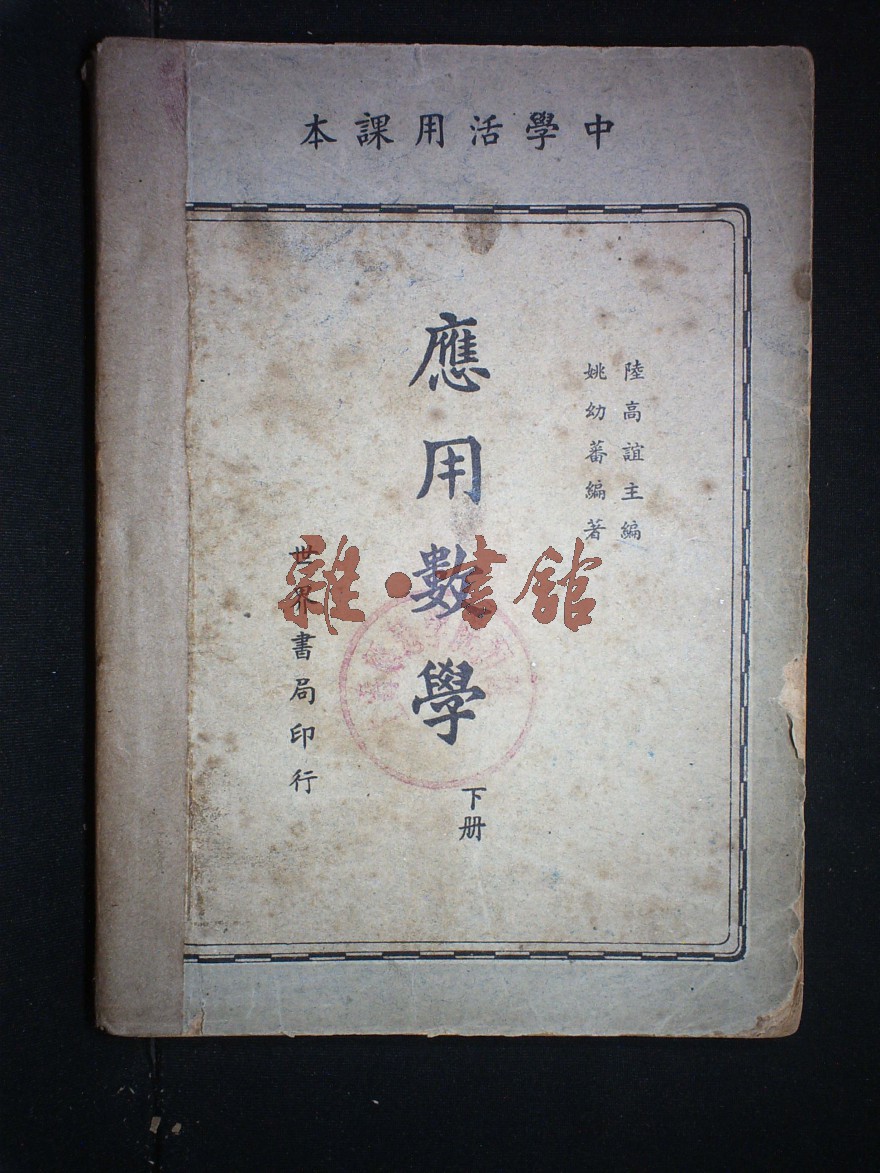 中學活用課本
陸高誼主編
姚幼蕃編著
應用數學
下册
世界書局印行
雜·書舘